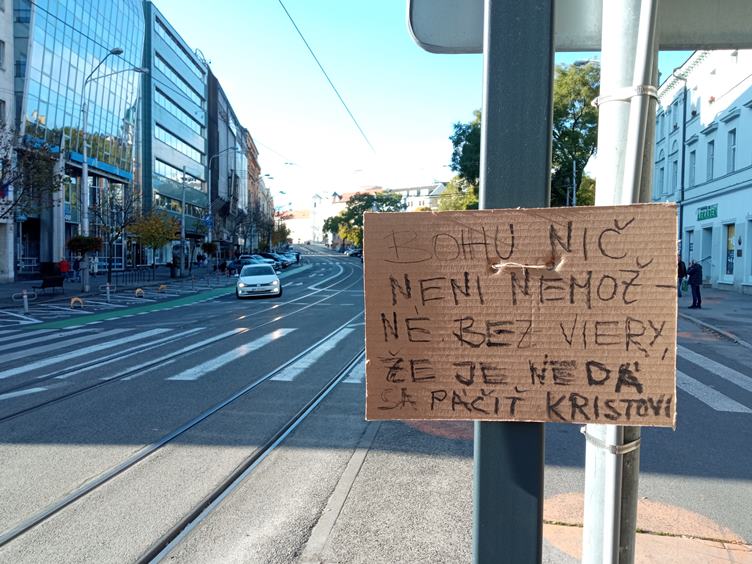 BOHU NIČ
NENI NEMOŽ-
NÉ. BEZ VIERY,
ŽE JE NEDÁ
SA PÁČIŤ KRISTOVI
LEKÁREŇ